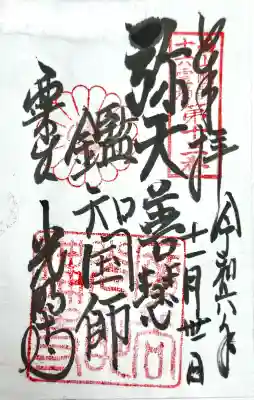 奉拝
令和六年
十一月廿日
弥天善慧
鑑知国師
粟生
光明寺